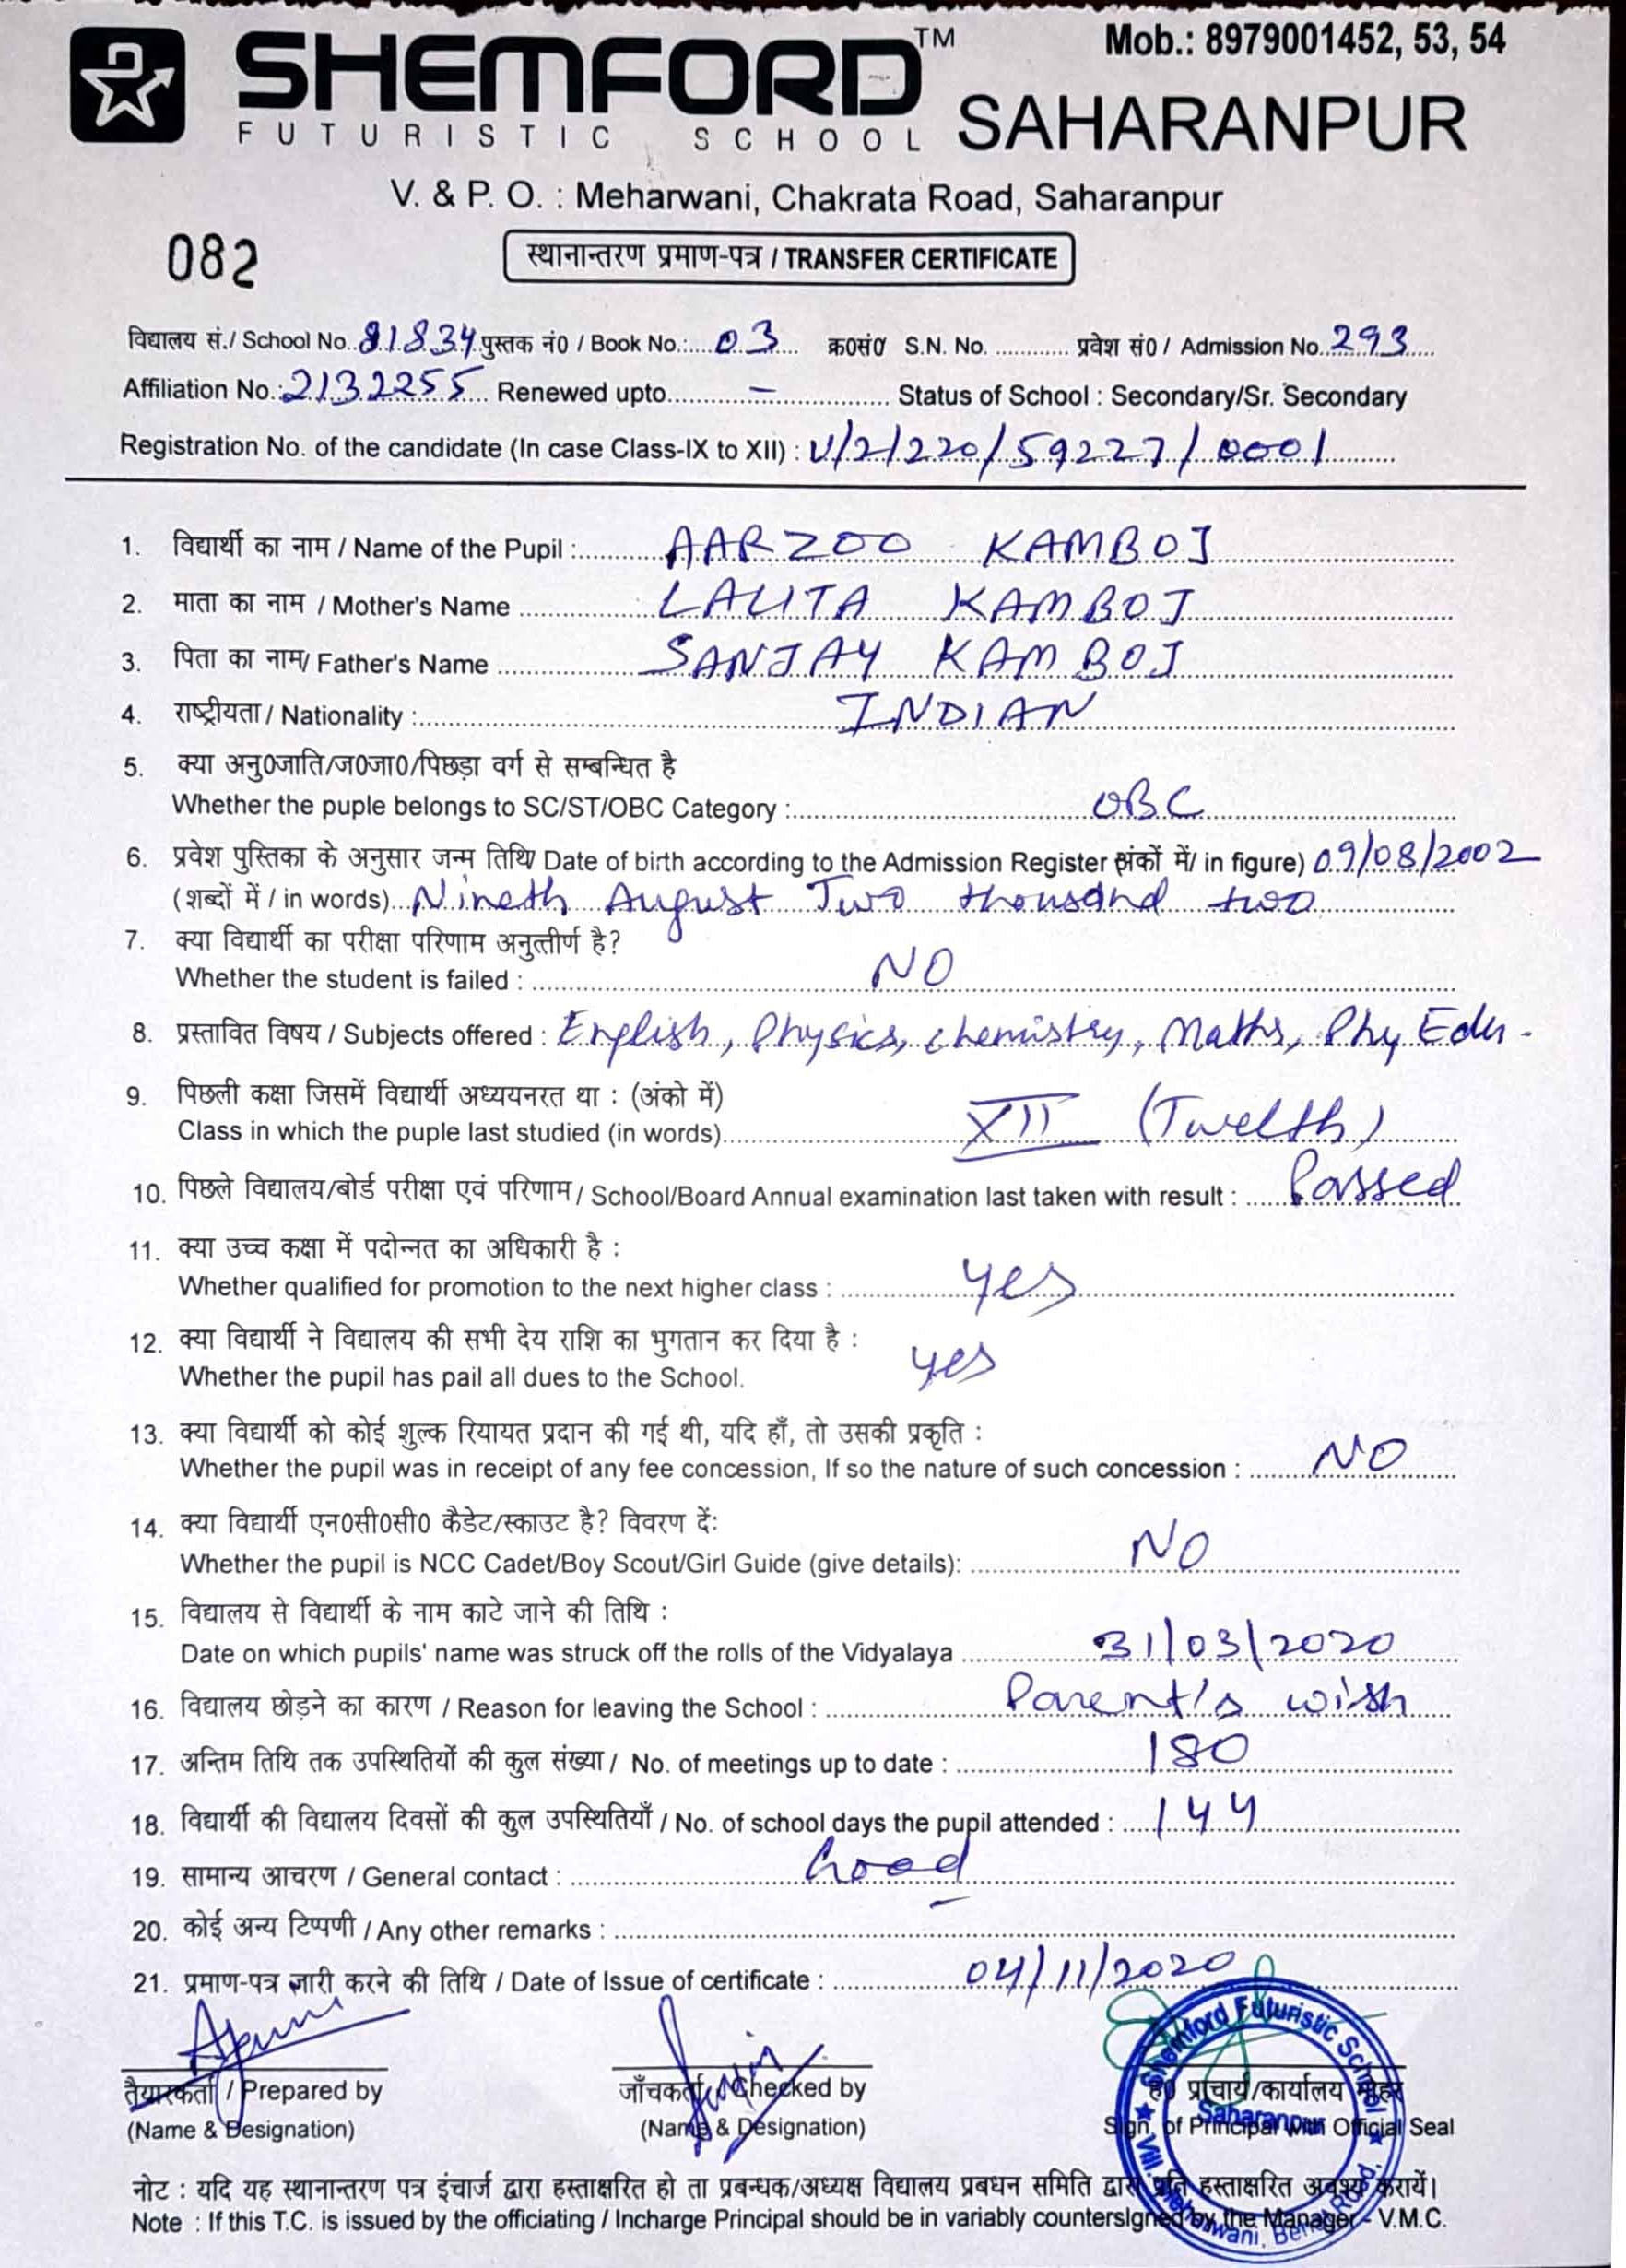 SHEMFORD™ Mob.: 8979001452, 53, 54
FUTURISTIC SCHOOL SAHARANPUR
V. & P. O. : Meharwani, Chakrata Road, Saharanpur
082 स्थानान्तरण प्रमाण-पत्र / TRANSFER CERTIFICATE
विद्यालय सं./ School No. 81834 पुस्तक नं0 / Book No.: 03 क्र0सं0 S.N. No. ............ प्रवेश सं0 / Admission No. 293
Affiliation No.: 2132255 Renewed upto - Status of School : Secondary/Sr. Secondary
Registration No. of the candidate (In case Class-IX to XII) : V/2/220/59227/0001
1. विद्यार्थी का नाम / Name of the Pupil : AARZOO KAMBOJ
2. माता का नाम / Mother's Name LALITA KAMBOJ
3. पिता का नाम/ Father's Name SANJAY KAMBOJ
4. राष्ट्रीयता / Nationality : INDIAN
5. क्या अनु0जाति/ज0जा0/पिछड़ा वर्ग से सम्बन्धित है
Whether the puple belongs to SC/ST/OBC Category : OBC
6. प्रवेश पुस्तिका के अनुसार जन्म तिथि/ Date of birth according to the Admission Register (अंकों में/ in figure) 09/08/2002
(शब्दों में / in words) Nineth August Two thousand two
7. क्या विद्यार्थी का परीक्षा परिणाम अनुत्तीर्ण है?
Whether the student is failed : NO
8. प्रस्तावित विषय / Subjects offered : English, Physics, chemistry, Maths, Phy Edu -
9. पिछली कक्षा जिसमें विद्यार्थी अध्ययनरत था : (अंको में)
Class in which the puple last studied (in words) XII (Twelth)
10. पिछले विद्यालय/बोर्ड परीक्षा एवं परिणाम / School/Board Annual examination last taken with result : Passed
11. क्या उच्च कक्षा में पदोन्नत का अधिकारी है :
Whether qualified for promotion to the next higher class : yes
12. क्या विद्यार्थी ने विद्यालय की सभी देय राशि का भुगतान कर दिया है :
Whether the pupil has pail all dues to the School. yes
13. क्या विद्यार्थी को कोई शुल्क रियायत प्रदान की गई थी, यदि हाँ, तो उसकी प्रकृति :
Whether the pupil was in receipt of any fee concession, If so the nature of such concession : NO
14. क्या विद्यार्थी एन0सी0सी0 कैडेट/स्काउट है? विवरण दें:
Whether the pupil is NCC Cadet/Boy Scout/Girl Guide (give details): NO
15. विद्यालय से विद्यार्थी के नाम काटे जाने की तिथि :
Date on which pupils' name was struck off the rolls of the Vidyalaya 31/03/2020
16. विद्यालय छोड़ने का कारण / Reason for leaving the School : Parent's wish
17. अन्तिम तिथि तक उपस्थितियों की कुल संख्या / No. of meetings up to date : 180
18. विद्यार्थी की विद्यालय दिवसों की कुल उपस्थितियाँ / No. of school days the pupil attended : 144
19. सामान्य आचरण / General contact : Good
20. कोई अन्य टिप्पणी / Any other remarks : -
21. प्रमाण-पत्र जारी करने की तिथि / Date of Issue of certificate : 04/11/2020
तैयारकर्ता / Prepared by जाँचकर्ता / Checked by ह0 प्राचार्य/कार्यालय मोहर
(Name & Designation) (Name & Designation) Sign. of Principal with Official Seal
Shemford Futuristic School
Saharanpur
नोट : यदि यह स्थानान्तरण पत्र इंचार्ज द्वारा हस्ताक्षरित हो ता प्रबन्धक/अध्यक्ष विद्यालय प्रबधन समिति द्वारा प्रति हस्ताक्षरित अवश्य करायें।
Note : If this T.C. is issued by the officiating / Incharge Principal should be in variably countersigned by the Manager - V.M.C.